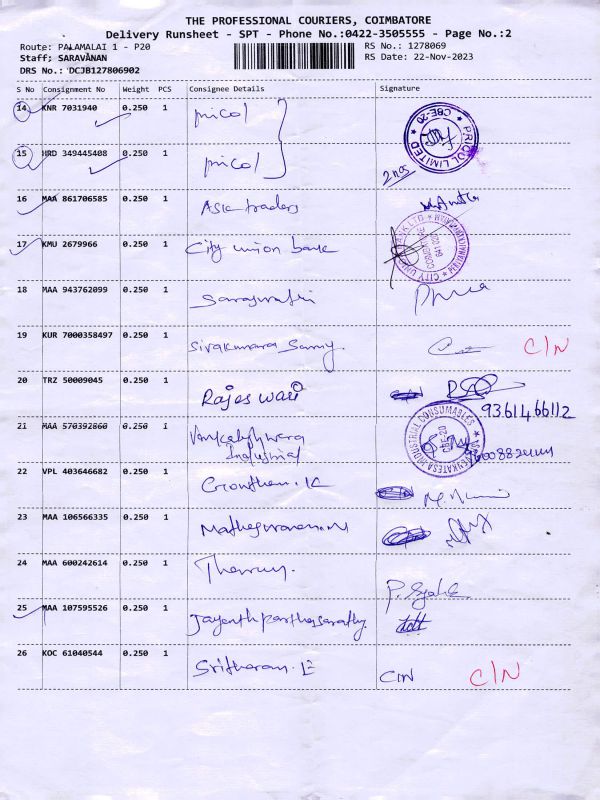 THE PROFESSIONAL COURIERS, COIMBATORE
Delivery Runsheet - SPT - Phone No.:0422-3505555 - Page No.:2
Route: PALAMALAI 1 - P20
RS No.: 1278069
Staff; SARAVANAN
RS Date: 22-Nov-2023
DRS No.: DCJB127806902
S No Consignment No Weight PCS Consignee Details Signature
14 KNR 7031940 0.250 1 pricol
PRICOL LIMITED CBE-20
15 HRD 349445408 0.250 1 pricol 2 nos
16 MAA 861706585 0.250 1 Ask traders
17 KMU 2679966 0.250 1 City union bank
CITY UNION BANK LTD. COIMBATORE 641 020 PERIYANAICKENPALAYAM
18 MAA 943762099 0.250 1 Saraswathi
19 KUR 7000358497 0.250 1 Sivakumara Samy. C/N
20 TRZ 50009045 0.250 1 Rajeswari
9361466112
21 MAA 570392860 0.250 1 Venkateshwera
Industrial
VENKATESA INDUSTRIAL CONSUMABLES CBE-20
22 VPL 403646682 0.250 1 Gowtham. K
23 MAA 106566335 0.250 1 Matheswaran. M
24 MAA 600242614 0.250 1
25 MAA 107595526 0.250 1 Jayanth parthasarathy.
26 KOC 61040544 0.250 1 Sritharan. E C/N C/N